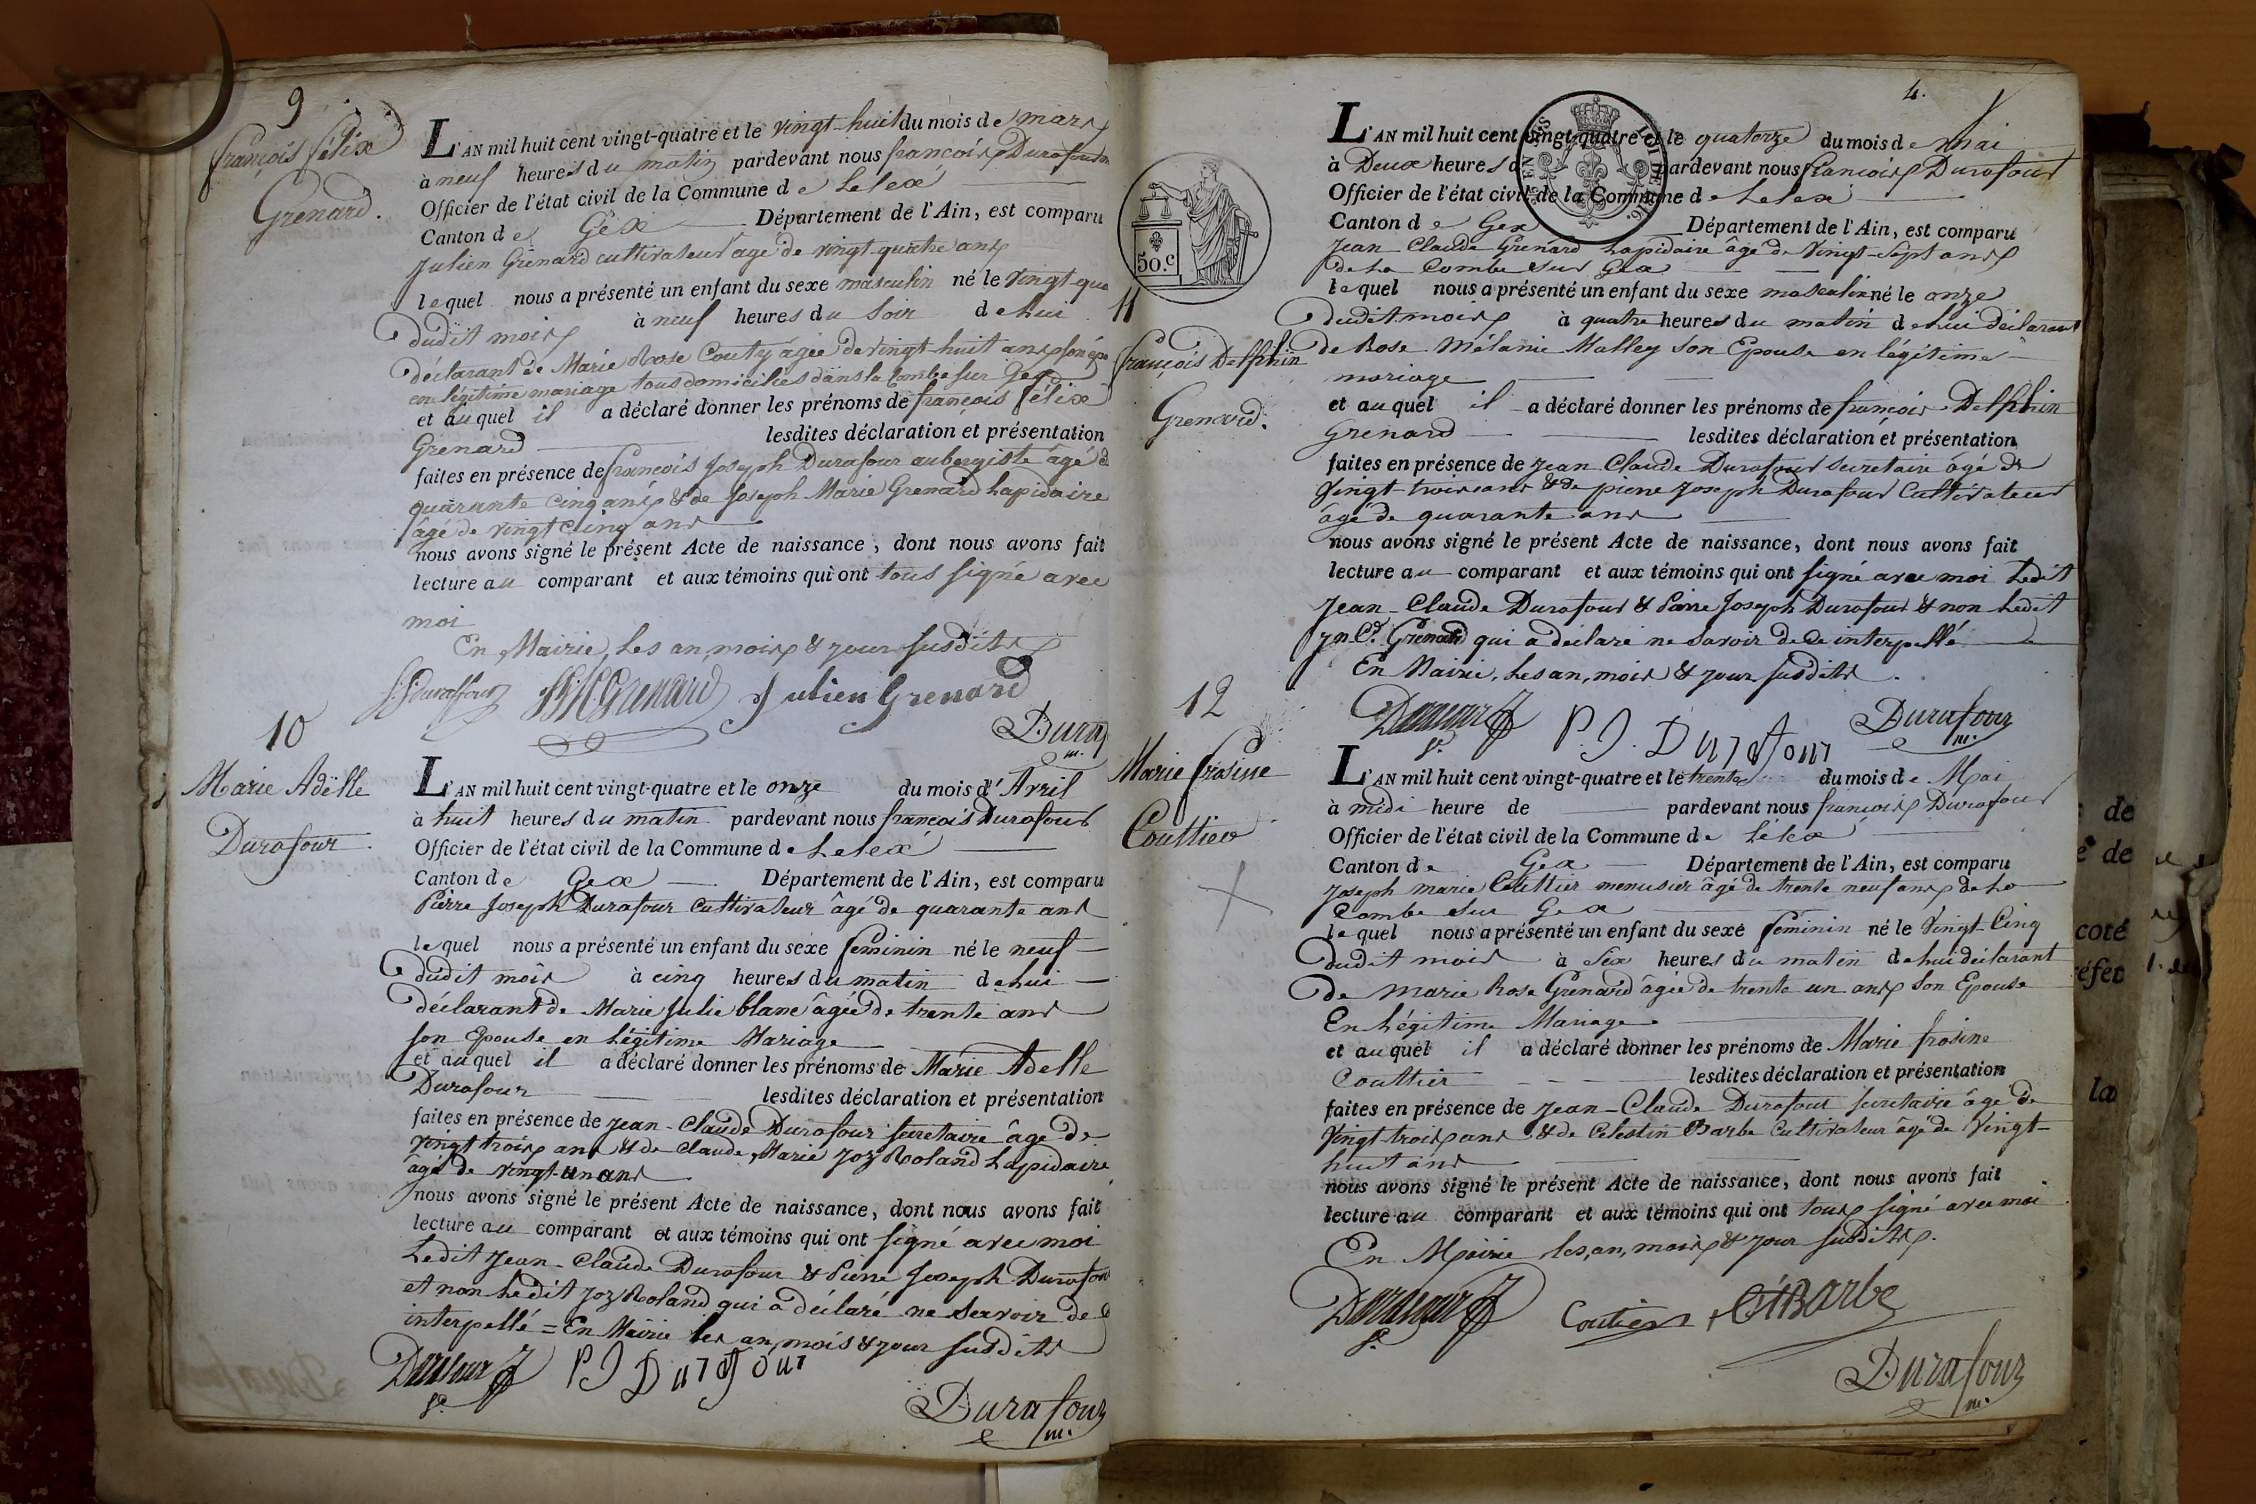 9
françois félix
Grenard.
L'AN mil huit cent vingt-quatre et le vingt-huit du mois de mars
à neuf heures du matin pardevant nous françois Durafour
Officier de l'état civil de la Commune de Lelex
Canton de Gex Département de l'Ain, est comparu
Julien Grenard cultivateur âgé de vingt quatre ans
lequel nous a présenté un enfant du sexe masculin né le vingt-qua
dudit mois à neuf heures du soir de lui
déclarant & de Marie Rose Couty âgée de vingt-huit ans son épou
en légitime mariage tous domiciliés dans la Combe sur Gex
et auquel il a déclaré donner les prénoms de françois félix
Grenard lesdites déclaration et présentation
faites en présence de françois Joseph Durafour aubergiste âgé d
quarante cinq ans & de Joseph Marie Grenard Lapidaire
âgé de vingt cinq ans
nous avons signé le présent Acte de naissance, dont nous avons fait
lecture au comparant et aux témoins qui ont tous signé avec
moi
En Mairie, les an, mois & jour susdits
Julien Grenard
10
Marie Adèlle
Durafour.
L'AN mil huit cent vingt-quatre et le onze du mois d'Avril
à huit heures du matin pardevant nous françois Durafour
Officier de l'état civil de la Commune de Lelex
Canton de Gex Département de l'Ain, est comparu
Pierre Joseph Durafour cultivateur âgé de quarante ans
lequel nous a présenté un enfant du sexe féminin né le neuf
dudit mois à cinq heures du matin de lui
déclarant & de Marie Julie blanc âgée de trente ans
son Epouse en légitime Mariage
et auquel il a déclaré donner les prénoms de Marie Adelle
Durafour lesdites déclaration et présentation
faites en présence de Jean-Claude Durafour secretaire âgé de
vingt trois ans & de Claude Marie Joz Roland Lapidaire
âgé de vingt-un ans
nous avons signé le présent Acte de naissance, dont nous avons fait
lecture au comparant et aux témoins qui ont signé avec moi
Ledit Jean-Claude Durafour & Pierre Joseph Durafour
et non Ledit Joz Roland qui a déclaré ne savoir de ce
interpellé = En Mairie les an, mois & jour susdits
P J Durafour
Durafour
m.
4.
50.c
11
françois Delphin
Grenard.
L'AN mil huit cent vingt-quatre et le quatorze du mois de Mai
à Deux heures d pardevant nous françois Durafour
Officier de l'état civil de la Commune de Lelex
Canton de Gex Département de l'Ain, est comparu
Jean Claude Grenard Lapidaire âgé de vingt-sept ans
de La Combe sur Gex
lequel nous a présenté un enfant du sexe masculin né le onze
dudit mois à quatre heures du matin de lui déclarant
de Rose Mélanie Malley son Epouse en légitime
mariage
et auquel il a déclaré donner les prénoms de françois Delphin
Grenard lesdites déclaration et présentation
faites en présence de Jean Claude Durafour secretaire âgé de
vingt-trois ans & de pierre Joseph Durafour Cultivateur
âgé de quarante ans
nous avons signé le présent Acte de naissance, dont nous avons fait
lecture au comparant et aux témoins qui ont signé avec moi Ledit
Jean-Claude Durafour & Pierre Joseph Durafour & non Ledit
Jn Cde Grenard qui a déclaré ne savoir de ce interpellé
En Mairie, les an, mois & jour susdits.
P. J. Durafour
Durafour
m.
12
Marie frosine
Couttier
L'AN mil huit cent vingt-quatre et le trente du mois de Mai
à midi heure de pardevant nous françois Durafour
Officier de l'état civil de la Commune de Lélex
Canton de Gex Département de l'Ain, est comparu
Joseph marie Couttier menusier âgé de trente neuf ans de La
Combe sur Gex
lequel nous a présenté un enfant du sexe féminin né le vingt-Cinq
dudit mois à six heures du matin de lui déclarant
de Marie Rose Grenard âgée de trente un ans son Epouse
En Légitime Mariage
et auquel il a déclaré donner les prénoms de Marie frosine
Couttier lesdites déclaration et présentation
faites en présence de Jean-Claude Durafour secretaire âgé de
vingt trois ans & de Celestin Barbe Cultivateur âgé de vingt-
huit ans
nous avons signé le présent Acte de naissance, dont nous avons fait
lecture au comparant et aux témoins qui ont tous signé avec moi
En Mairie les, an, mois & jour susdits.
Coutier
Barbe
Durafour
m.
de
de
coté
éfet
la